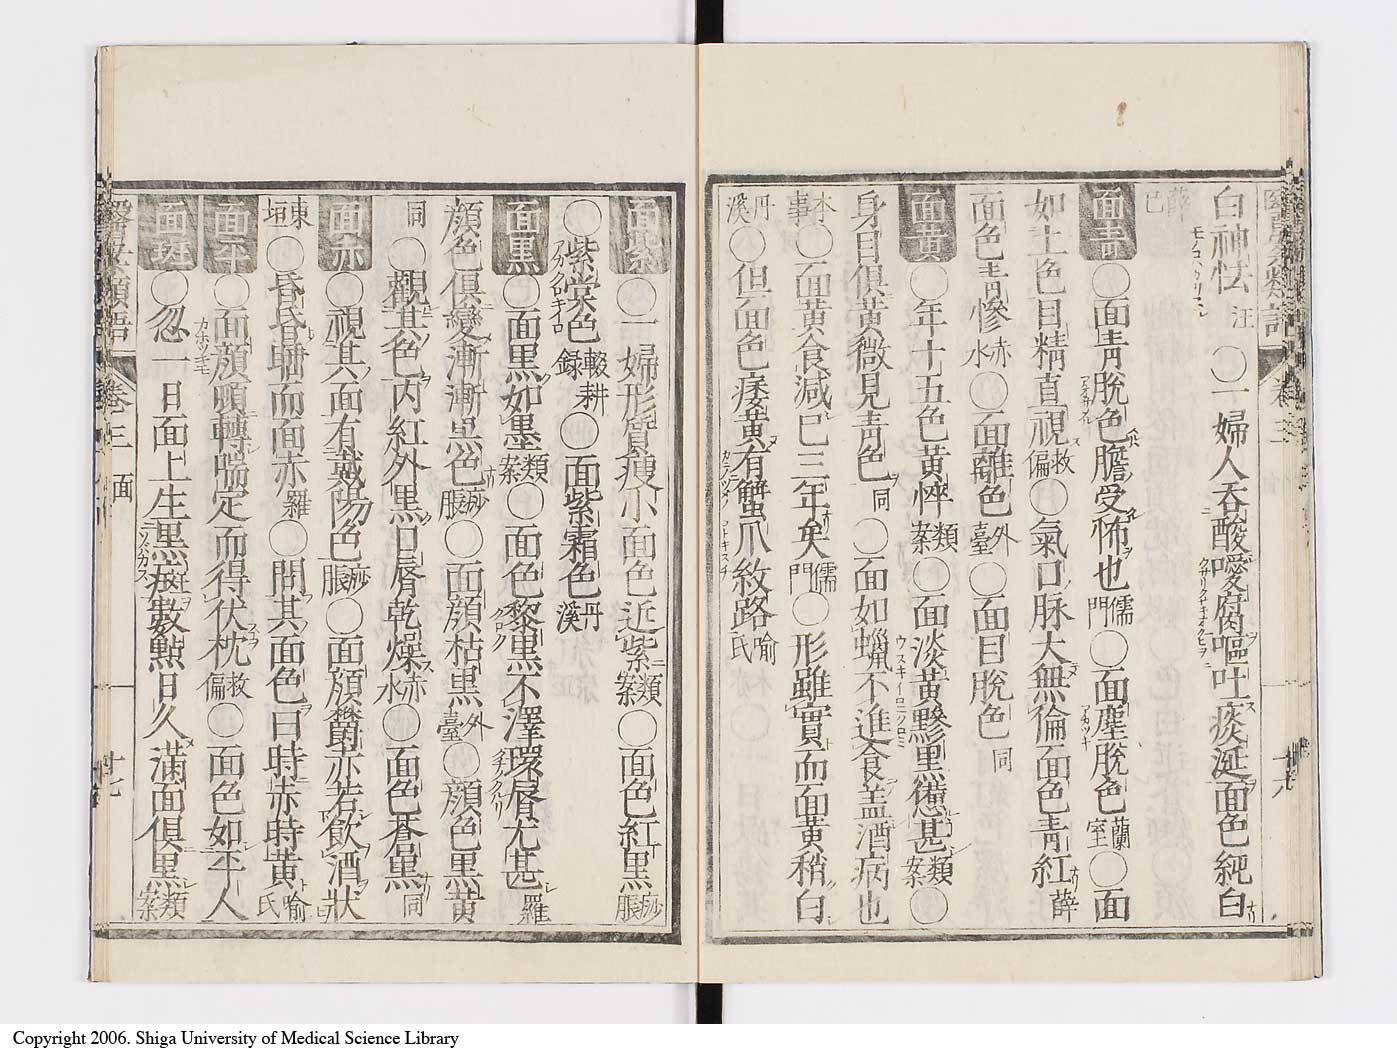 白神怯汪○一婦人呑酸噯腐嘔吐痰涎面色純白
薛已
面青○面青脫色膽受怖也儒門○面塵脫色蘭室○面
如土色目精直視救偏○氣口脉大無倫面色青紅薛
面色青慘赤水○面離色外臺○面目脫色同
面黄○年十五色黄悴類案○面淡黄黲黒憊甚類案○
身目俱黄微見青色同○面如蠟不進食盖酒病也
本事○面黄食減已三年矣儒門○形雖實而面黄稍白
丹溪○但面色痿黄有蟹爪紋路喻氏
十六
面紫○一婦形質瘦小面色近紫類案○面色紅黒痧脹
○紫棠色輟耕録○面紫霜色丹溪
面黒○面黒如墨類案○面色黎黒不澤環唇尤甚羅
顔色俱變漸漸黒色痧脹○面顔枯黒外臺○顔色黒黄
同○觀其色内紅外黒口唇乾燥赤水○面色蒼黒同
面赤○視其面有戴陽色痧脹○面顔欝赤若飲酒狀
東垣○昏昏睡而面赤羅○問其面色曰時赤時黄喻氏
面平○面顔頭轉喘定而得伏枕救偏○面色如平人
面斑○忽一日面上生黒斑數點日久滿面俱黒類案
醫女類語 卷三 面 十七